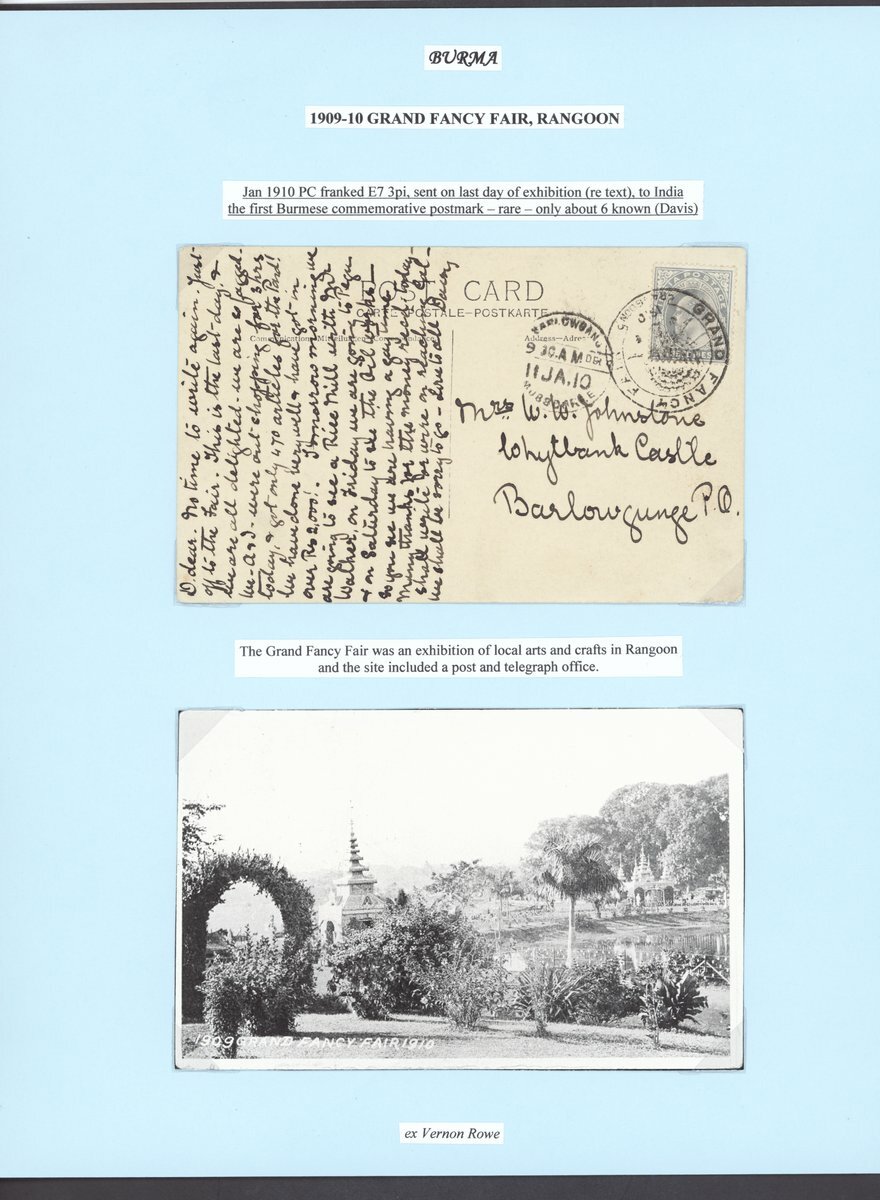 BURMA
1909-10 GRAND FANCY FAIR, RANGOON
Jan 1910 PC franked E7 3pi, sent on last day of exhibition (re text), to India
the first Burmese commemorative postmark – rare – only about 6 known (Davis)
POST CARD
CARTE-POSTALE-POSTKARTE
Address-Adresse
O dear. No time to write again. Just
off to the Fair. This is the last day, &
we are all delighted - we are so fagged.
We - A & I - were out shopping for 3 hrs
today, & got only 470 articles for the Pard!
We have done very well & have got in
over Rs 2,000! Tomorrow morning we
are going to see a Rice Mill with Mr
Walker, on Friday we are going to Pegu
& on Saturday to see the Oil works -
so you see we are having a gay time
Many thanks for the money recd today -
shall write for more on reaching Cal -
We shall be sorry to go - Love to all Daisy
BARLOWGANJ
9 30.A M DEL
11 JA.10
MUSSOORIE
GRAND FANCY FAIR
POSTAGE
Mrs W. W. Johnstone
Whytbank Castle
Barlowgunge P.O.
The Grand Fancy Fair was an exhibition of local arts and crafts in Rangoon
and the site included a post and telegraph office.
1909 GRAND FANCY FAIR 1910
ex Vernon Rowe